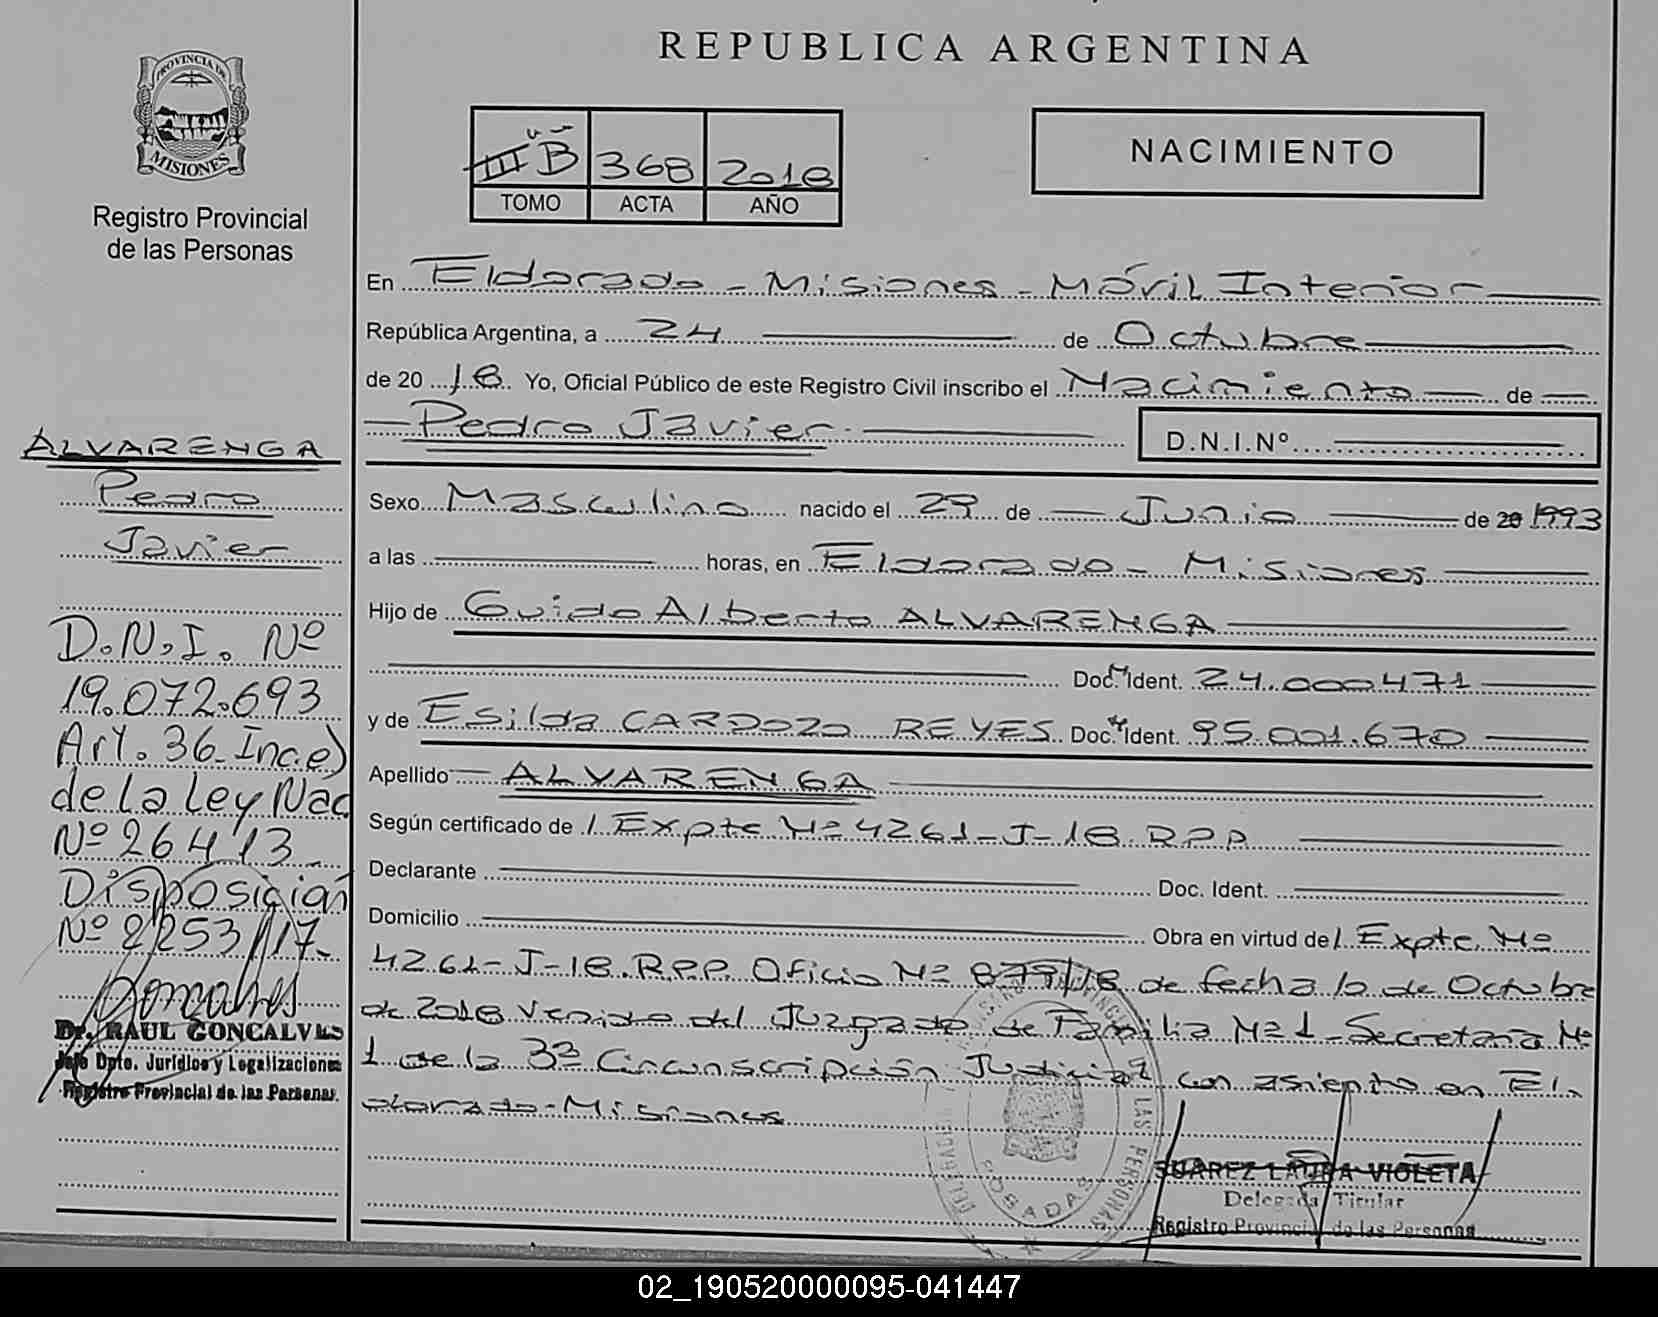 PROVINCIA DE
MISIONES
Registro Provincial
de las Personas
ALVARENGA
Pedro
Javier
D.N.I. Nº
19.072.693
Art. 36 Inc. e)
de la Ley Nac
Nº 26413
Disposición
Nº 2253/17.
Goncalves
Dr. RAUL GONCALVES
Jefe Dpto. Jurídico y Legalizaciones
Registro Provincial de las Personas
REPUBLICA ARGENTINA
III B 368 2018
TOMO ACTA AÑO
NACIMIENTO
En Eldorado - Misiones - Móvil Interior
República Argentina, a 24 de Octubre
de 20 18 Yo, Oficial Público de este Registro Civil inscribo el Nacimiento de
Pedro Javier D.N.I.Nº
Sexo Masculino nacido el 29 de Junio de 20 1993
a las horas, en Eldorado - Misiones
Hijo de Guido Alberto ALVARENGA
Doc. Ident. 24.000471
y de Esilda CARDOZO REYES Doc. Ident. 95.001.670
Apellido ALVARENGA
Según certificado de / Expte Nº 4261-J-18.R.P.P.
Declarante Doc. Ident.
Domicilio Obra en virtud de / Expte. Nº
4261-J-18.R.P.P. Oficio Nº 879/18 de fecha 10 de Octubre
de 2018 Venido del Juzgado de Familia Nº 1 - Secretaria Nº
1 de la 3ª Circunscripción Judicial con asiento en El
dorado - Misiones
LAS PERSONAS
POSADAS
SUAREZ LAURA VIOLETA
Delegada Titular
Registro Provincial de las Personas
02_190520000095-041447